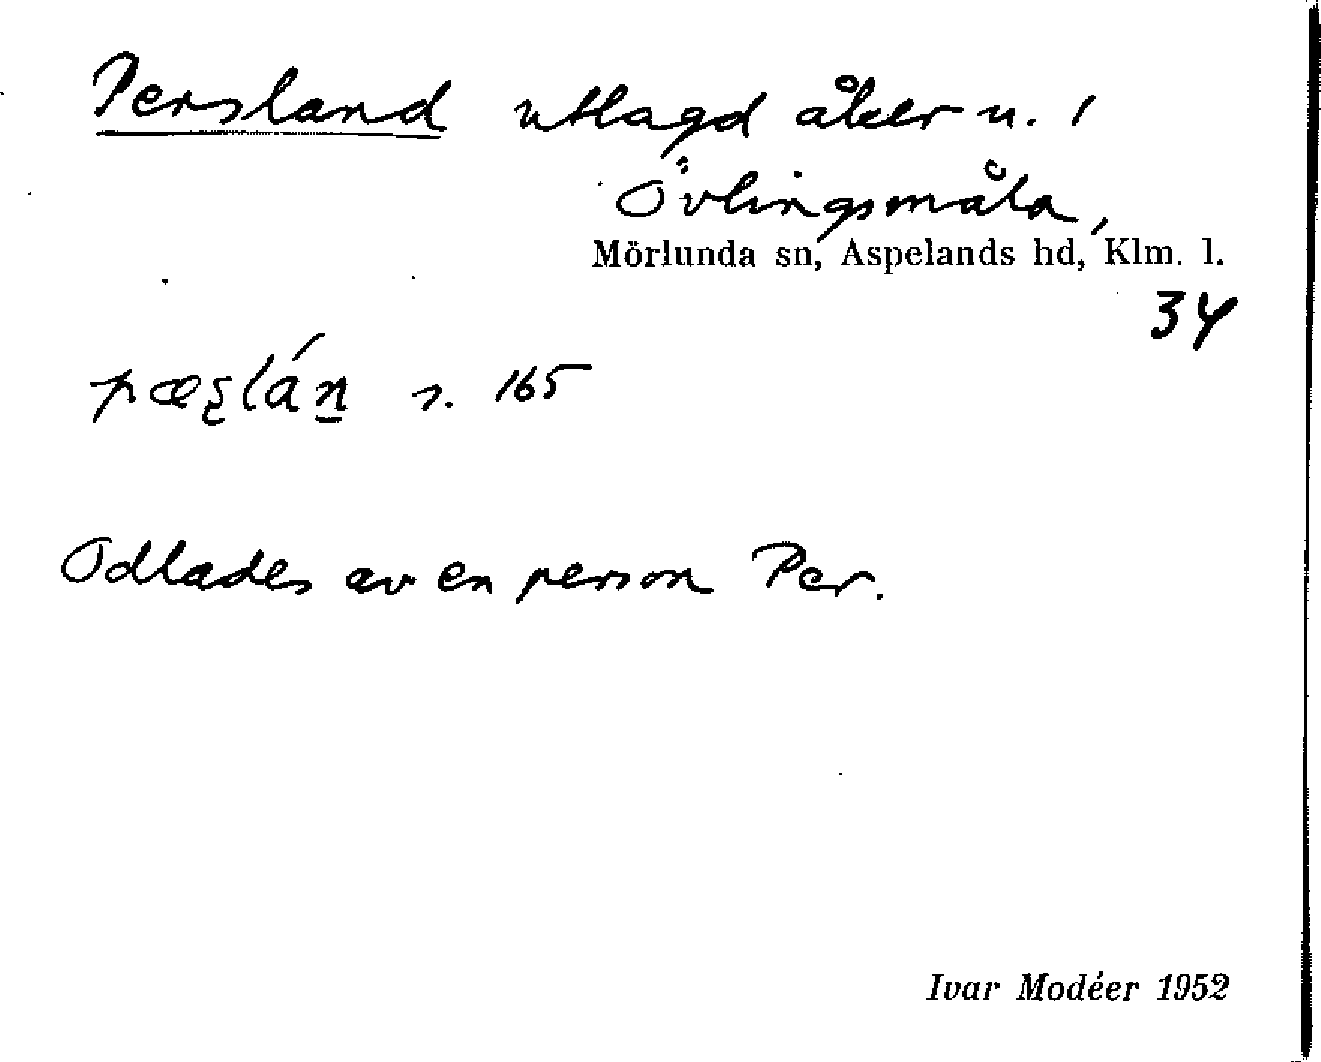 Persland utlagd åker u. 1
Övlingsmåla,
Mörlunda sn, Aspelands hd, Klm. l.
34
s. 165
Odlades av en person Per.
Ivar Modéer 1952